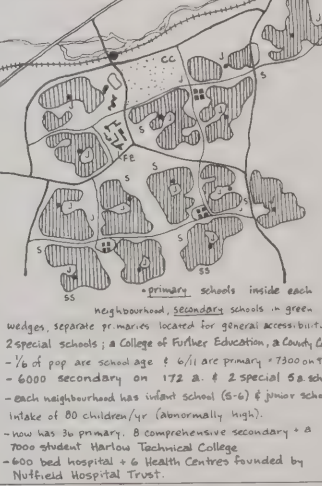 CC
J
S
J
S
J
S
J
S
FE
J
S
S
S
J
J
S
J
J
S
SS
SS
- primary schools inside each
neighbourhood, secondary schools in green
wedges, separate primaries located for general accessibilit
2 special schools; a College of Further Education, a County C
- 1/6 of pop are school age & 6/11 are primary = 7300 on
- 6000 secondary on 172 a. & 2 special 5 a. sch
- each neighbourhood has infant school (5-6) & junior scho
intake of 80 children/yr (abnormally high).
- now has 36 primary, 8 comprehensive secondary + a
7000 student Harlow Technical College
- 600 bed hospital + 6 Health Centres founded by
Nuffield Hospital Trust.